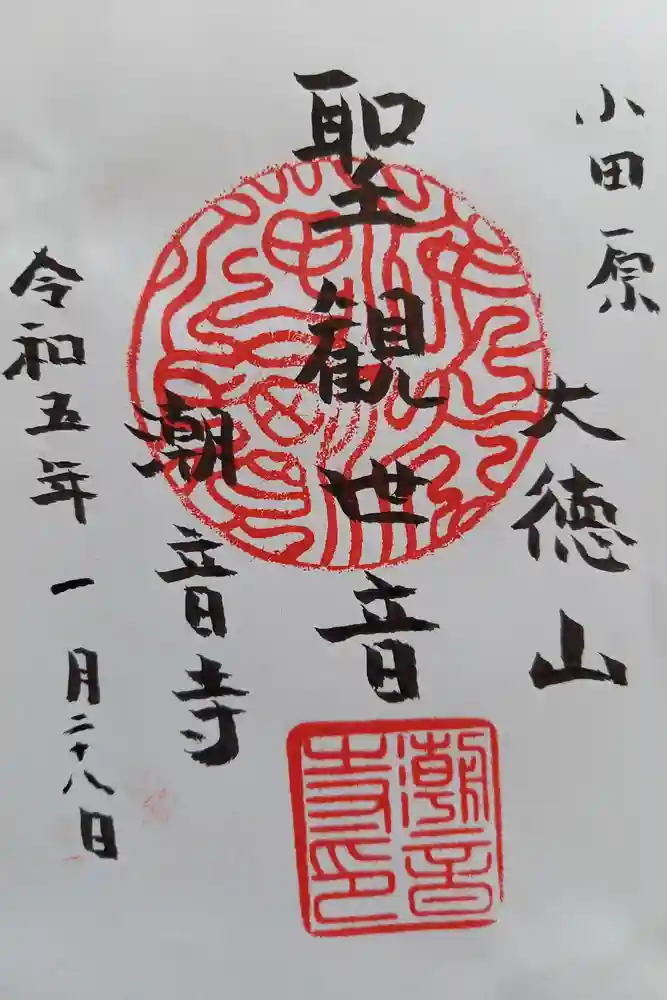 小田原
大徳山
聖観世音
潮音寺
令和五年一月二十八日
潮音寺印